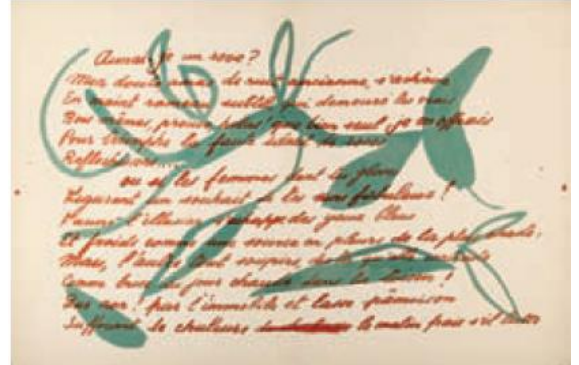 Aimai-je un rêve ?
Mon doute, amas de nuit ancienne, s'achève
En maint rameau subtil, qui, demeuré les vrais
Bois mêmes, prouve, hélas! que bien seul je m'offrais
Pour triomphe la faute idéale de roses
Réfléchissons...
ou si les femmes dont tu gloses
Figurent un souhait de tes sens fabuleux !
Faune, l'illusion s'échappe des yeux bleus
Et froids, comme une source en pleurs, de la plus chaste:
Mais, l'autre tout soupirs, dis-tu qu'elle contraste
Comme brise du jour chaude dans ta toison !
Que non ! par l'immobile et lasse pâmoison
Suffoquant de chaleurs le matin frais s'il lutte